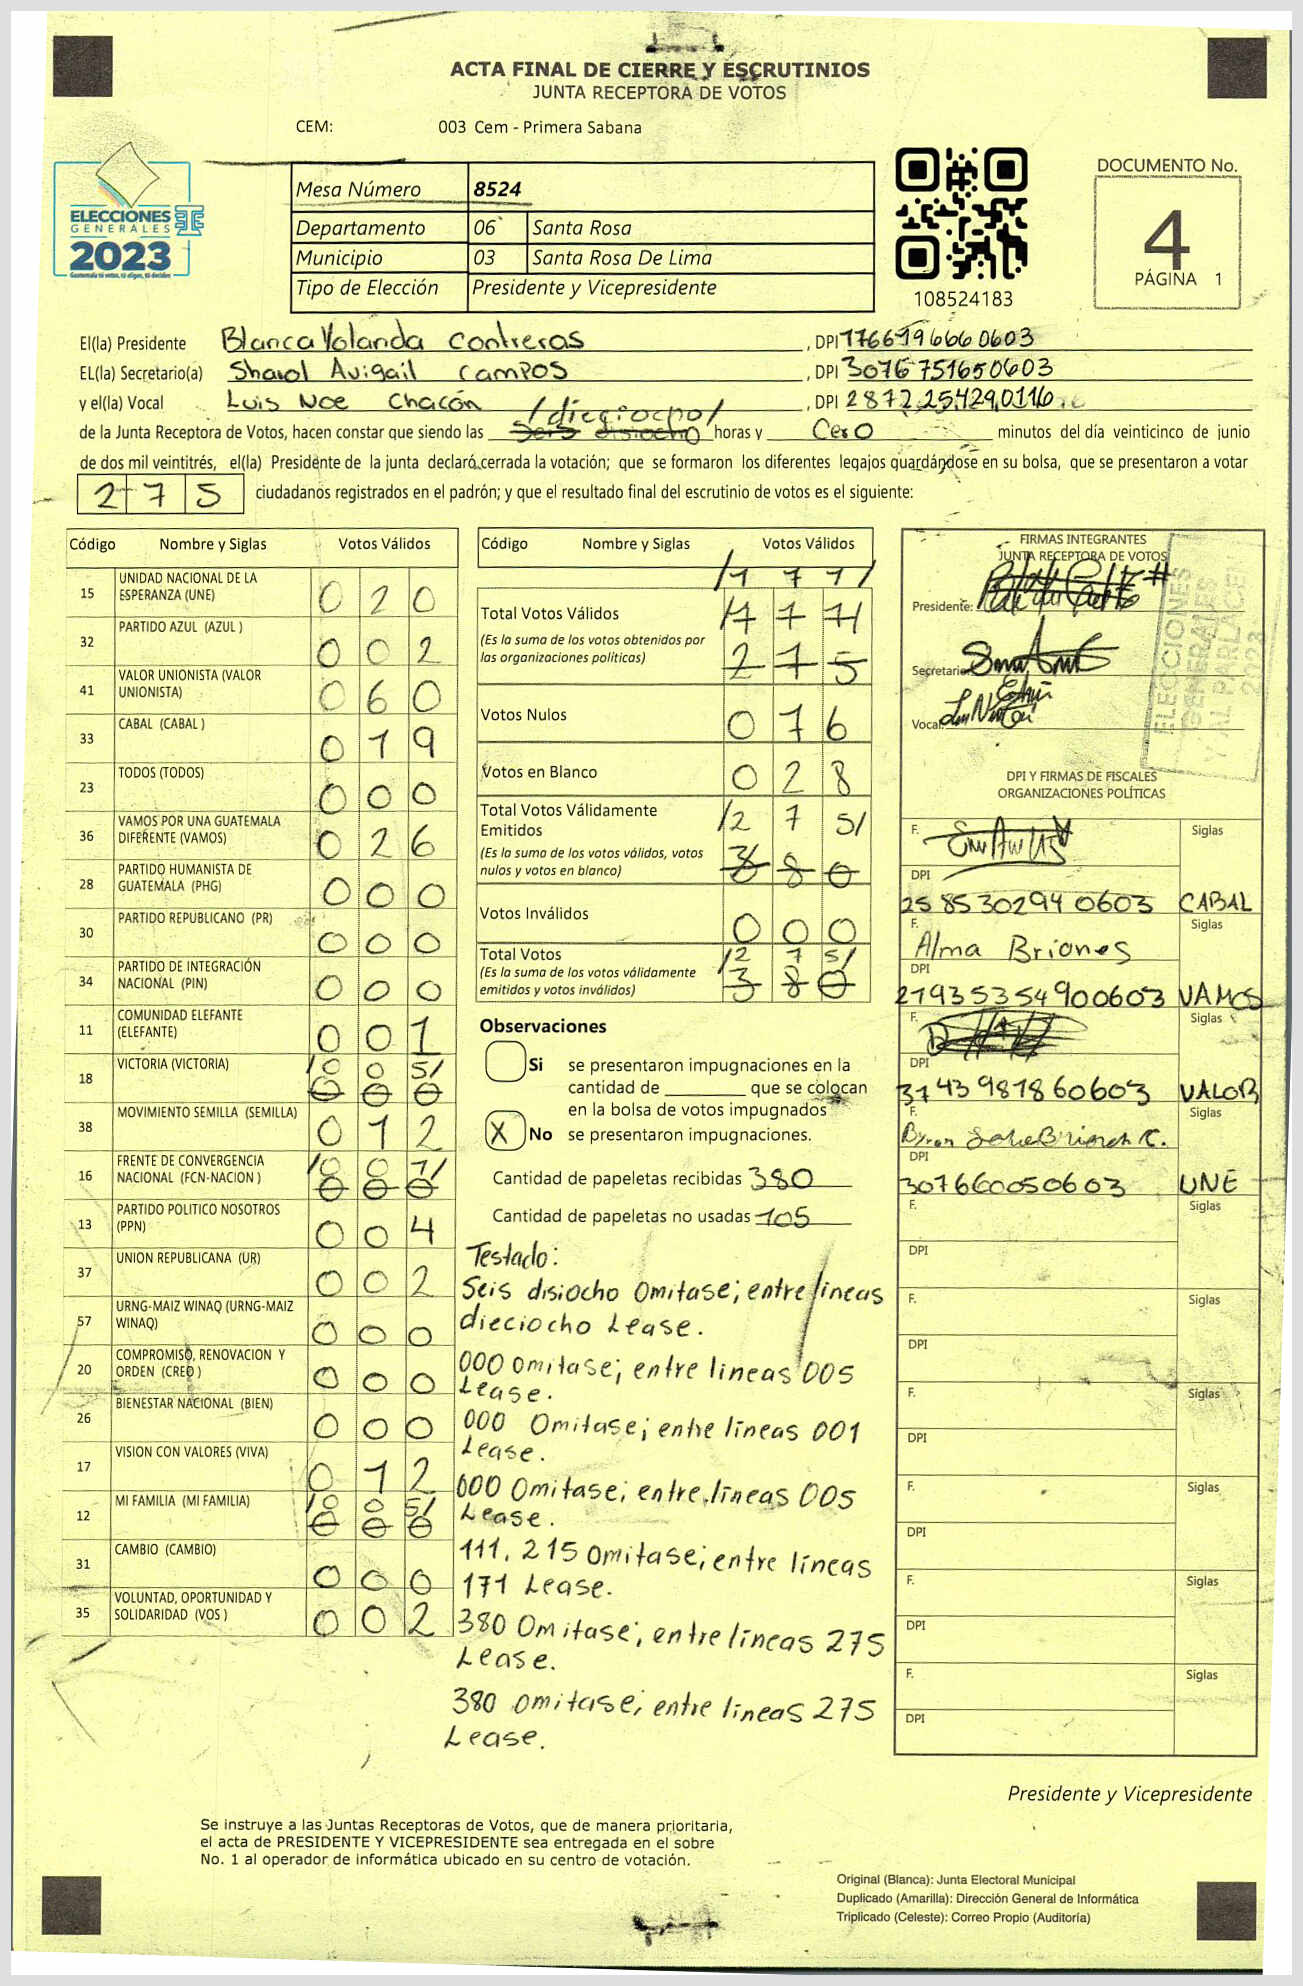 ACTA FINAL DE CIERRE Y ESCRUTINIOS
JUNTA RECEPTORA DE VOTOS
CEM: 003 Cem - Primera Sabana
ELECCIONES
GENERALES
2023
Guatemala tú votas, tú eliges, tú decides
Mesa Número 8524
Departamento 06 Santa Rosa
Municipio 03 Santa Rosa De Lima
Tipo de Elección Presidente y Vicepresidente
108524183
DOCUMENTO No.
4
PÁGINA 1
El(la) Presidente Blanca Yolanda Contreras , DPI 1766196660603
EL(la) Secretario(a) Sharol Avigail Campos , DPI 3076751650603
y el(la) Vocal Luis Noe Chacón , DPI 2872254290116
/dieciocho/
de la Junta Receptora de Votos, hacen constar que siendo las Seis disiocho horas y Cero minutos del día veinticinco de junio
de dos mil veintitrés, el(la) Presidente de la junta declaró cerrada la votación; que se formaron los diferentes legajos guardándose en su bolsa, que se presentaron a votar
275 ciudadanos registrados en el padrón; y que el resultado final del escrutinio de votos es el siguiente:
Código Nombre y Siglas Votos Válidos
15 UNIDAD NACIONAL DE LA
ESPERANZA (UNE) 0 2 0
32 PARTIDO AZUL (AZUL ) 0 0 2
41 VALOR UNIONISTA (VALOR
UNIONISTA) 0 6 0
33 CABAL (CABAL ) 0 1 9
23 TODOS (TODOS) 0 0 0
36 VAMOS POR UNA GUATEMALA
DIFERENTE (VAMOS) 0 2 6
28 PARTIDO HUMANISTA DE
GUATEMALA (PHG) 0 0 0
30 PARTIDO REPUBLICANO (PR) 0 0 0
34 PARTIDO DE INTEGRACIÓN
NACIONAL (PIN) 0 0 0
11 COMUNIDAD ELEFANTE
(ELEFANTE) 0 0 1
18 VICTORIA (VICTORIA) /0 0 5/
0 0 0
38 MOVIMIENTO SEMILLA (SEMILLA) 0 1 2
16 FRENTE DE CONVERGENCIA
NACIONAL (FCN-NACION ) /0 0 1/
0 0 0
13 PARTIDO POLITICO NOSOTROS
(PPN) 0 0 4
37 UNION REPUBLICANA (UR) 0 0 2
57 URNG-MAIZ WINAQ (URNG-MAIZ
WINAQ) 0 0 0
20 COMPROMISO, RENOVACION Y
ORDEN (CREO ) 0 0 0
26 BIENESTAR NACIONAL (BIEN) 0 0 0
17 VISION CON VALORES (VIVA) 0 1 2
12 MI FAMILIA (MI FAMILIA) /0 0 5/
0 0 0
31 CAMBIO (CAMBIO) 0 0 0
35 VOLUNTAD, OPORTUNIDAD Y
SOLIDARIDAD (VOS ) 0 0 2
Código Nombre y Siglas Votos Válidos
/1 7 1/
Total Votos Válidos
(Es la suma de los votos obtenidos por
las organizaciones políticas)
2 7 5
Votos Nulos 0 7 6
Votos en Blanco 0 2 8
Total Votos Válidamente
Emitidos /2 7 5/
(Es la suma de los votos válidos, votos
nulos y votos en blanco) 3 8 0
Votos Inválidos 0 0 0
Total Votos /2 7 5/
(Es la suma de los votos válidamente
emitidos y votos inválidos) 3 8 0
Observaciones
Si se presentaron impugnaciones en la
cantidad de ________ que se colocan
en la bolsa de votos impugnados
X No se presentaron impugnaciones.
Cantidad de papeletas recibidas 380
Cantidad de papeletas no usadas 105
Testado:
Seis disiocho Omitase; entre lineas
dieciocho Lease.
000 omitase; entre lineas 005
Lease.
000 Omitase; entre líneas 001
Lease.
000 Omitase; entre líneas 005
Lease.
111, 215 Omitase; entre líneas
171 Lease.
380 Omitase; entre líneas 275
Lease.
380 omitase; entre líneas 275
Lease.
FIRMAS INTEGRANTES
JUNTA RECEPTORA DE VOTOS
Presidente:
Secretario
Vocal
ELECCIONES
GENERALES
Y AL PARLACEN
2023
DPI Y FIRMAS DE FISCALES
ORGANIZACIONES POLÍTICAS
F. Siglas
DPI
2585302940603 CABAL
F. Alma Briones Siglas
DPI
2193535490060 3 VAMOS
F. Siglas
DPI
3743981860603 VALOR
F. Siglas
DPI
307660050603 UNE
F. Siglas
DPI
F. Siglas
DPI
F. Siglas
DPI
F. Siglas
DPI
F. Siglas
DPI
F. Siglas
DPI
Presidente y Vicepresidente
Se instruye a las Juntas Receptoras de Votos, que de manera prioritaria,
el acta de PRESIDENTE Y VICEPRESIDENTE sea entregada en el sobre
No. 1 al operador de informática ubicado en su centro de votación.
Original (Blanca): Junta Electoral Municipal
Duplicado (Amarilla): Dirección General de Informática
Triplicado (Celeste): Correo Propio (Auditoría)